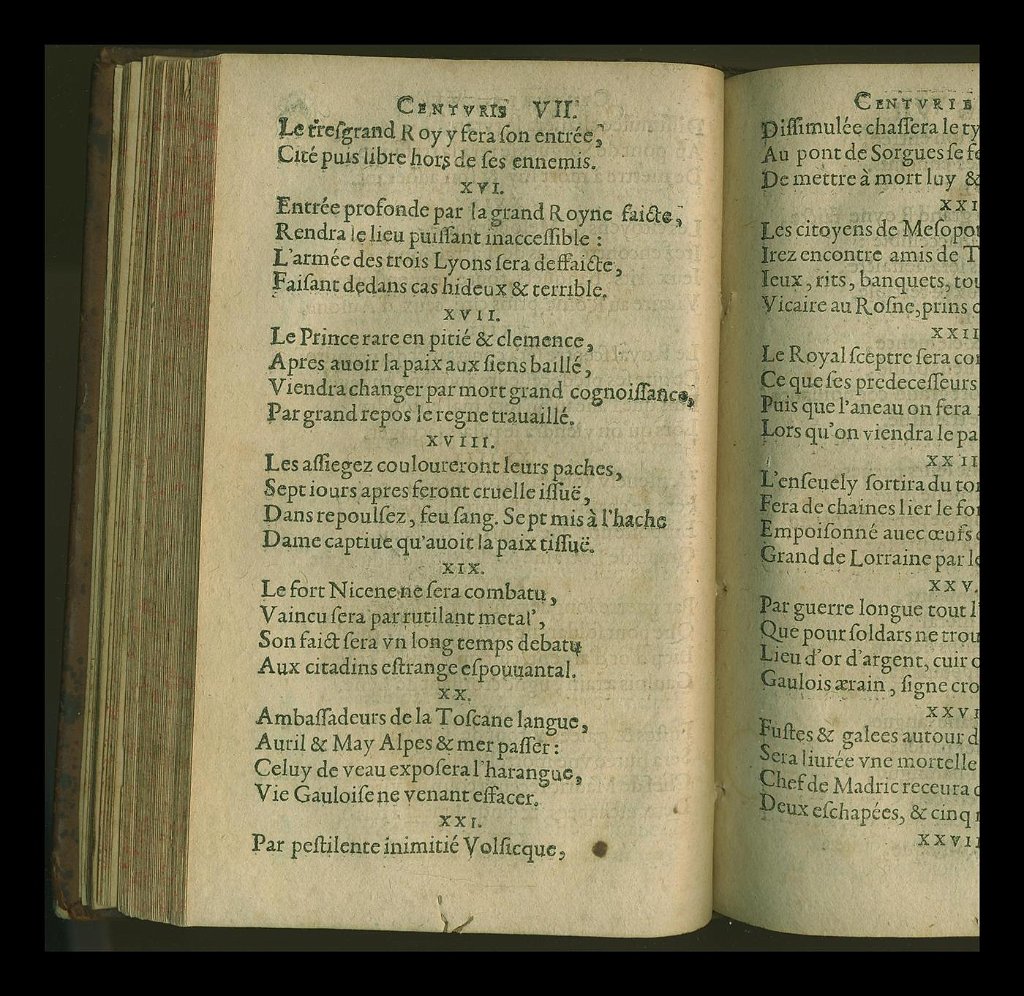 CENTVRIE VII.
Le treſgrand Roy y fera ſon entrée,
Cité puis libre hors de ſes ennemis.
XVI.
Entrée profonde par la grand Royne faicte,
Rendra le lieu puiſſant inacceſſible :
L'armée des trois Lyons ſera deffaicte,
Faiſant dedans cas hideux & terrible.
XVII.
Le Prince rare en pitié & clemence,
Apres auoir la paix aux ſiens baillé,
Viendra changer par mort grand cognoiſſance,
Par grand repos le regne trauaillé.
XVIII.
Les aſſiegez couloureront leurs paches,
Sept iours apres feront cruelle iſſuë,
Dans repoulſez, feu ſang. Sept mis à l'hache
Dame captiue qu'auoit la paix tiſſuë.
XIX.
Le fort Nicene ne ſera combatu,
Vaincu ſera par rutilant metal',
Son faict ſera vn long temps debatu
Aux citadins eſtrange eſpouuantal.
XX.
Ambaſſadeurs de la Toſcane langue,
Auril & May Alpes & mer paſſer :
Celuy de veau expoſera l'harangue,
Vie Gauloiſe ne venant effacer.
XXI.
Par peſtilente inimitié Volſicque,
CENTVRIE
Diſſimulée chaſſera le ty
Au pont de Sorgues ſe fe
De mettre à mort luy &
XXI
Les citoyens de Meſopot
Irez encontre amis de T
Ieux, rits, banquets, tou
Vicaire au Roſne, prins
XXII
Le Royal ſceptre ſera con
Ce que ſes predeceſſeurs
Puis que l'aneau on fera
Lors qu'on viendra le pa
XXII
L'enſeuely ſortira du to
Fera de chaines lier le for
Empoiſonné auec œufs
Grand de Lorraine par le
XXV.
Par guerre longue tout l'
Que pour ſoldars ne trou
Lieu d'or d'argent, cuir
Gaulois ærain, ſigne cro
XXVI
Fuſtes & galees autour d
Sera liurée vne mortelle
Chef de Madric receura
Deux eſchapées, & cinq
XXVII